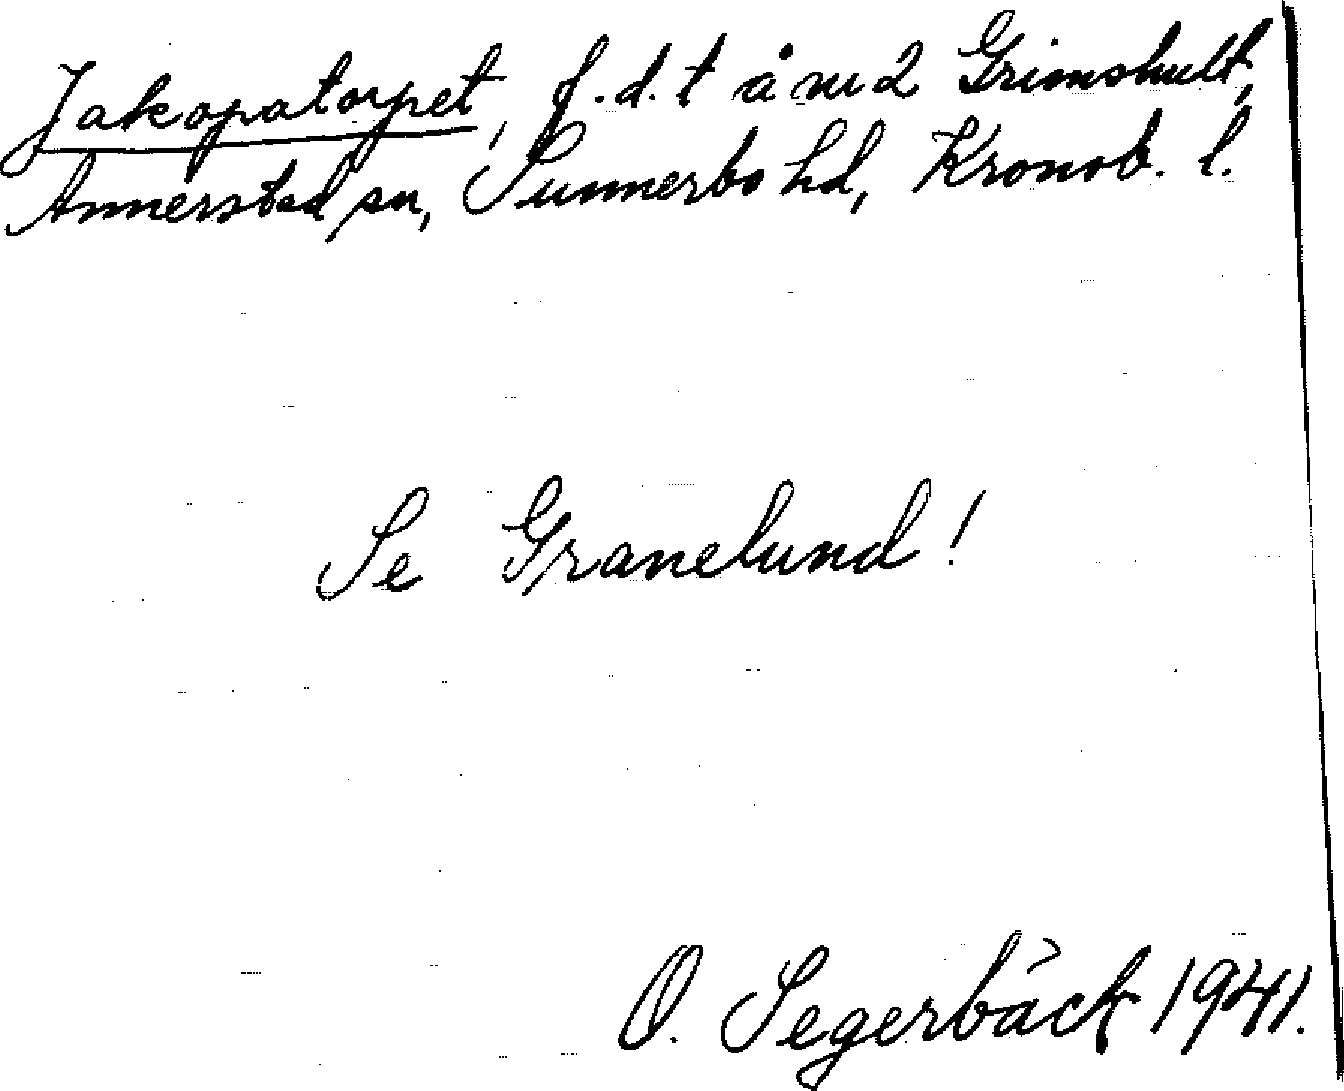 Jakopatorpet, f.d. t å nr 2 Grimshult,
Annerstad sn, Sunnerbo hd, Kronob. l.
Se Granelund!
O. Segerbäck 1941.